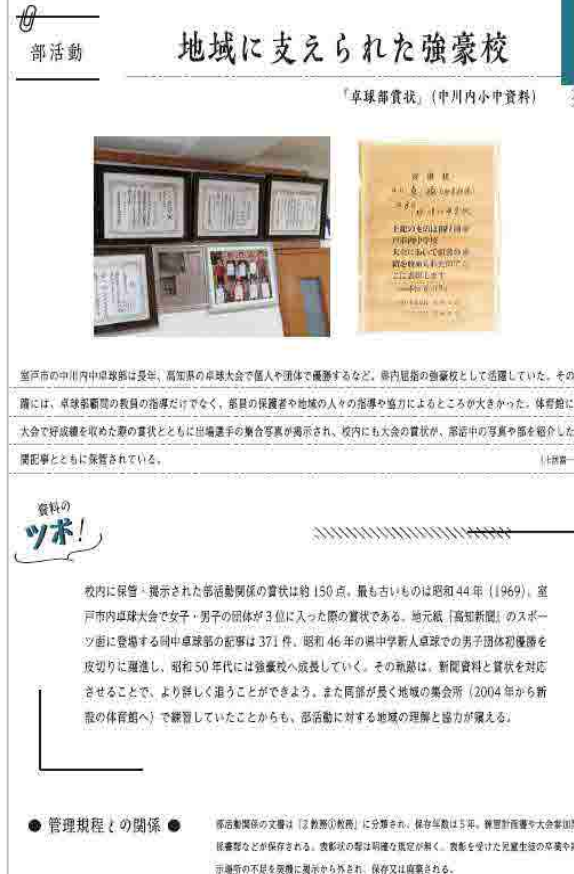 部活動
地域に支えられた強豪校
「卓球部賞状」(中川内小中資料)
室戸市の中川内中卓球部は長年、高知県の卓球大会で個人や団体で優勝するなど、県内屈指の強豪校として活躍していた。その
躍には、卓球部顧問の教員の指導だけでなく、部員の保護者や地域の人々の指導や協力によるところが大きかった。体育館に
大会で好成績を収めた際の賞状とともに出場選手の集合写真が掲示され、校内にも大会の賞状が、部活中の写真や部を紹介した
聞記事とともに保管されている。
資料の
ツボ!
校内に保管・掲示された部活動関係の賞状は約150点。最も古いものは昭和44年(1969)、室
戸市内卓球大会で女子・男子の団体が3位に入った際の賞状である。地元紙『高知新聞』のスポー
ツ面に登場する同中卓球部の記事は371件。昭和46年の県中学新人卓球での男子団体初優勝を
皮切りに躍進し、昭和50年代には強豪校へ成長していく。その軌跡は、新聞資料と賞状を対応
させることで、より詳しく追うことができよう。また同部が長く地域の集会所(2004年から新
設の体育館へ)で練習していたことからも、部活動に対する地域の理解と協力が窺える。
● 管理規程との関係 ●
部活動関係の文書は「2教務①教務」に分類され、保存年数は5年。練習計画書や大会参加
係書類などが保存される。表彰状の類は明確な規定が無く、表彰を受けた児童生徒の卒業や
示場所の不足を契機に掲示から外され、保存又は廃棄される。